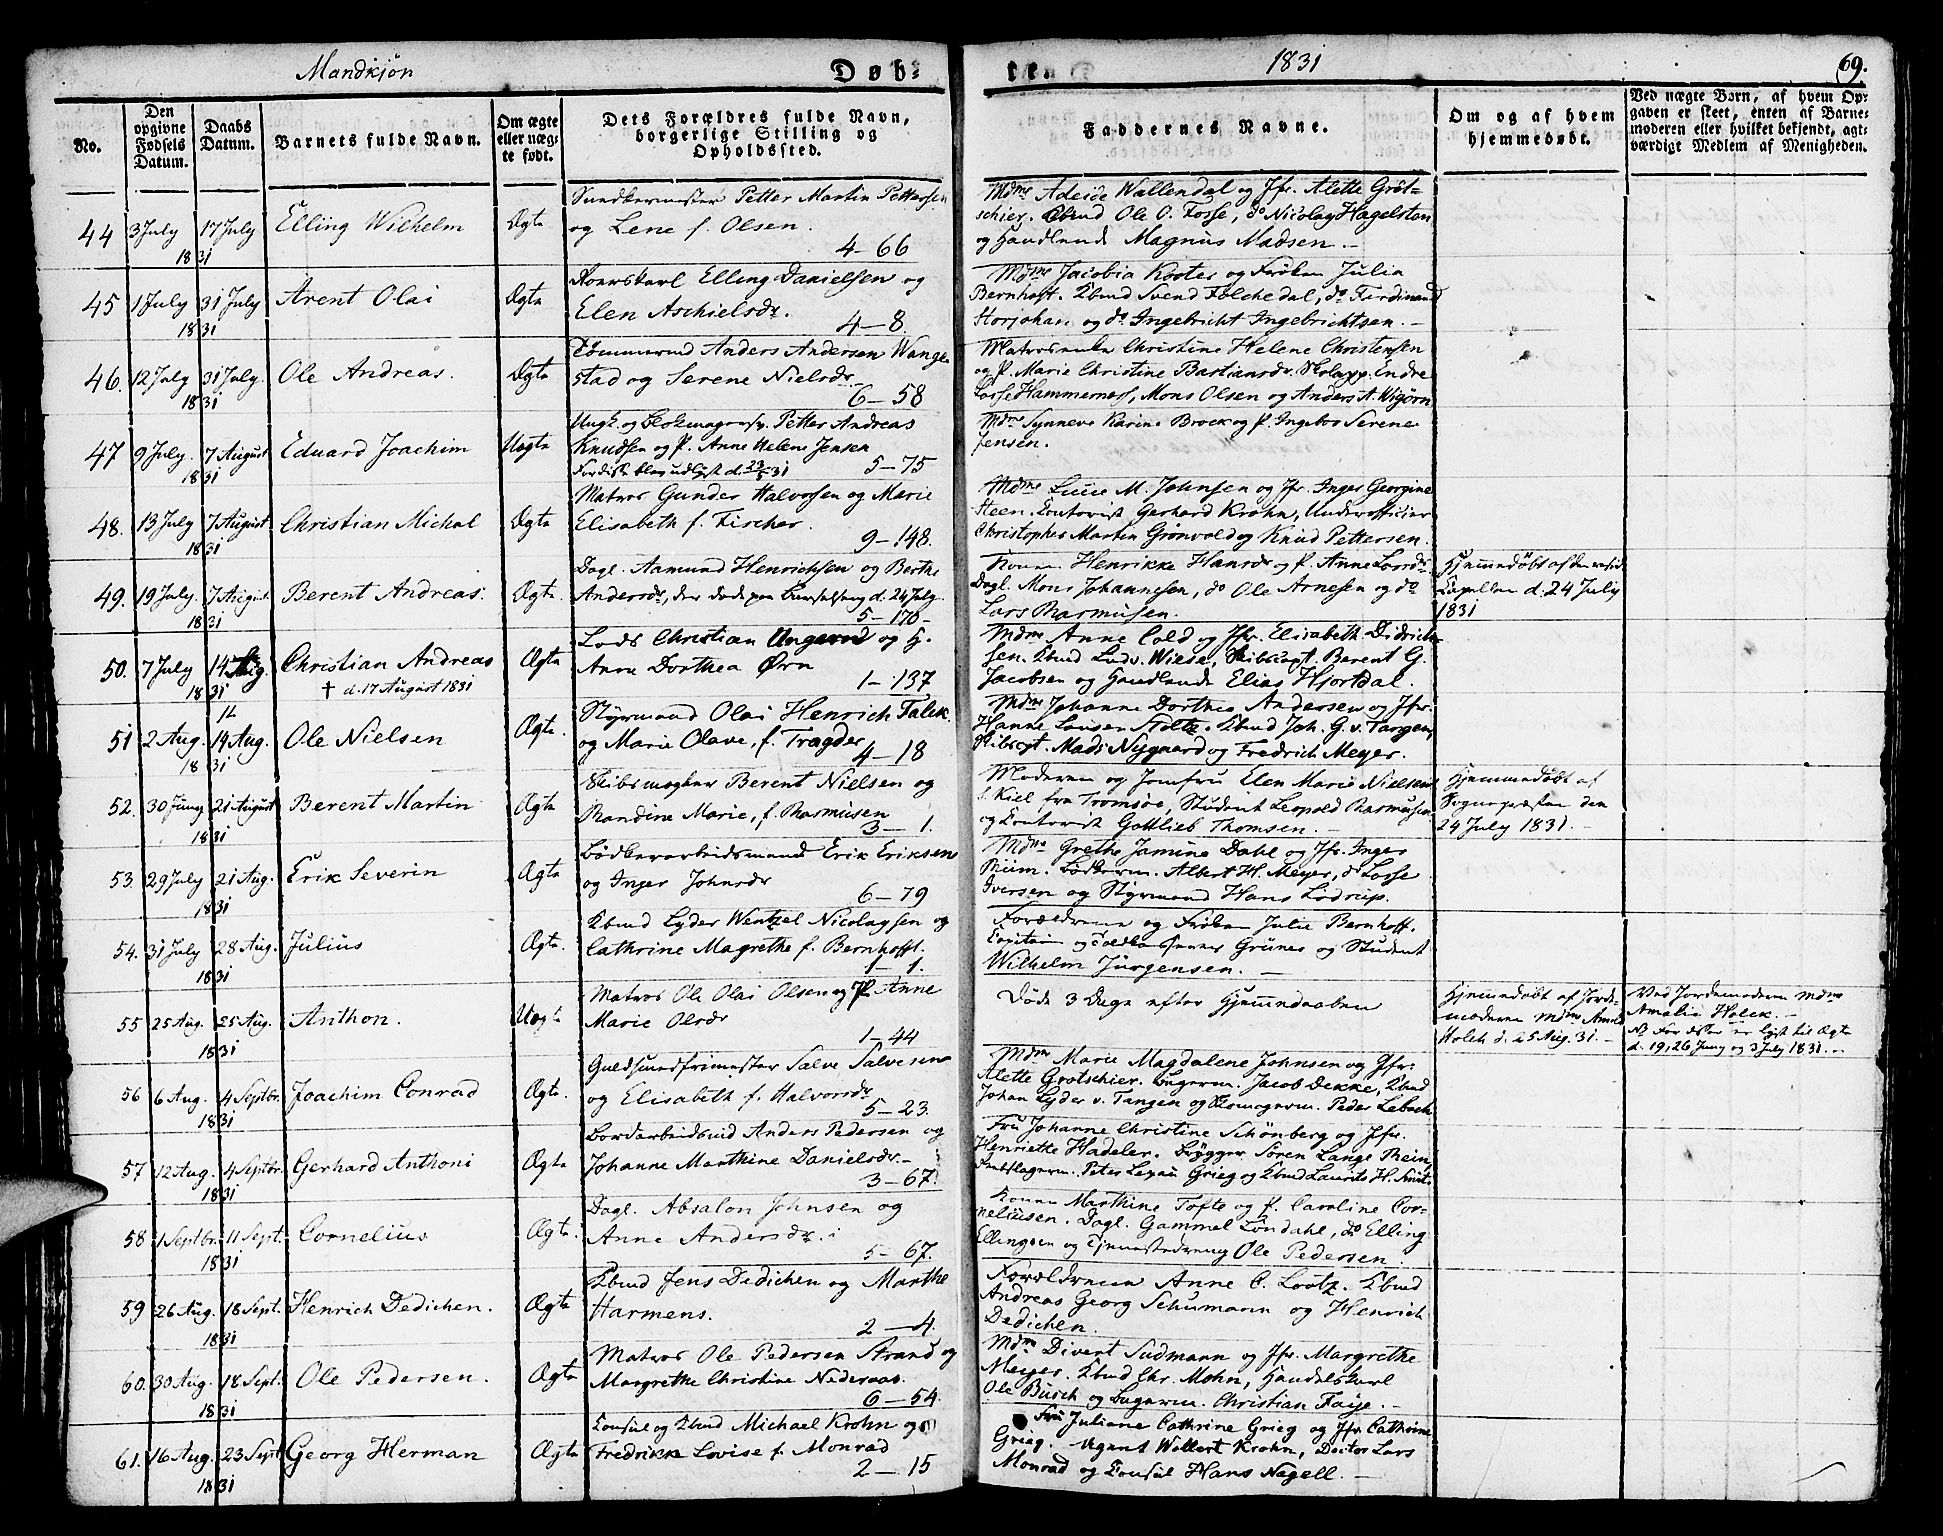 Mandkjön
Døb-
te.
1831
69.
No.
Den opgivne Fødsels Datum.
Daabs Datum.
Barnets fulde Navn.
Om ægte eller uægte født.
Dets Forældres fulde Navn, borgerlige Stilling og Opholdssted.
Faddernes Navne.
Om og af hvem hjemmedøbt.
Ved uægte Børn, af hvem Opgaven er skeet, enten af Barnemoderen eller hvilket bekjendt, agtværdigt Medlem af Menigheden.
44 3 July 17 July Elling Wilhelm Ægte
1831
Petter Martin Pettersen
og Lene f. Olsen.
4-66
Mdme Adeide Wallendal og Jfr. Alette Gröt-
schier. Kbmd Ole O. Fosse, do Nicolay Hagelsten
og Handlende Magnus Madsen.
45 1 July 31 July Arent Olai Ægte
1831
Elling Danielsen og
Elen Aschielsdr.
4-8.
Mdme Jacobia Koster og Frøken Julia
Bernhoft. Kbmd Svend Folchedal, do Ferdinand
Storjohan og do Ingebricht Ingebrichtsen.
46. 12 July 31 July. Ole Andreas. Ægte
1831
Tömmermd Anders Andersen Wange
stad og Serene Nielsdr.
6-58
Christine Helene Christensen
og P. Marie Christine Bastiansdr. Endre
Lasse Hammernes, Mons Olsen og Anders A. Wigörn
47 9 July. 7 August Eduard Joachim Uægte
1831
Petter Andreas
Knudsen og P. Anne Helene Jensen
5-75
Mdme Synneve Karine Brock og P. Ingebor Serene
Jensen.
48. 13 July 7 August. Christian Michal Ægte
1831
Matros Gunder Halvorsen og Marie
Elisabeth f. Fischer.
9-148.
Mdme Lucie M. Johnsen og Jfr. Inger Georgine
Steen. Contorist Gerhard Krohn, Underofficier
Christopher Martin Grönvold og Knud Pettersen.
49. 19 July. 7 August Berent Andreas. Ægte.
1831
Dagl. Aamund Henrichsen og Berthe
Andersdr, der døde paa Barselseng d. 24 July.
5-170-
Konen Henrikke Hansdr og P. Anne Larsdr.
Dagl. Mons Johannesen, do Ole Arnesen og do
Lars Rasmusen.
Hjemmedöbt af
Capellan d. 24 July
1831
50. 7 July 14 Aug. Christian Andreas Ægte
1831 † d. 17 August 1831
Lods Christian Ungerud og H.
Anne Dorthea Örn
1-137
Mdme Anne Cold og Jfr. Elisabeth Didrich-
sen. Kbmd Ludv. Wiese, Skibscpt. Berent G.
Jacobsen og Handlende Elias Hjortdal.
51 2 Aug. 14 Aug. Ole Nielsen Ægte.
1831
Styrmand Olai Henrich Falck
og Marie Olave, f. Tragder
4-18
Mdme Johanne Dorthea Andersen og Jfr.
Hanne Lovise Stolte. Kbmd Joh. G. v. Tangen,
Skibscpt. Mads Nygaard og Fredrich Meyer.
52. 30 Juny 21 August Berent Martin Ægte
1831
Skibsmægler Berent Nielsen og
Randine Marie, f. Rasmusen
3-1.
Moderen og Jomfru Elen Marie Nielsen
f. Kiel fra Tromsöe, Student Leopold Rasmusen
og Contorist Gottlieb Thomsen.
Hjemmedöbt af
Sognepræsten den
24 July 1831.
53. 29 July 21 Aug. Erik Severin Ægte
1831
Bödkerarbeidsmand Erik Eriksen
og Inger Johnsdr
6-79
Mdme Grethe Jamine Dahl og Jfr. Inger
Riim. Bödkerm. Albert H. Meyer, do Lasse
Iversen og Styrmand Hans Lodrup.
54. 31 July 28 Aug. Julius Ægte.
1831
Kbmd Lyder Wentzel Nicolaysen og
Cathrine Magrethe f. Bernhofft.
1-1.
Forældrene og Frøken Julie Bernhoff.
Capitain og Grunes og Student
Wilhelm Jürgensen.
55 25 Aug. 25 Aug. Anthon. Uægte
1831
Matros Ole Olai Olsen og P. Anne
Marie Olsdr
1-44
Døde 3 Dage efter Hjemmedaaben
Hjemmedöbt af Jorde-
moderen Mdme Amalie
Holck d. 25 Aug. 31.
Ved Jordemoderen Mdme
Amalie Holck.
NB Forældrene er lyst til Ægte
d. 19, 26 Juny og 3 July 1831.
56 6 Aug. 4 Septbr. Joachim Conrad Ægte.
1831
Guldsmedsmester Salve Salvesen
og Elisabeth f. Halvorsdr
5-23.
Mdme Marie Magdalene Johnsen og Jfr.
Alette Grotschier. Bagerm. Jacob Dekke, Kbmd
Johan Lyder v. Tangen og Skomagerm. Peder Lebach
57 12 Aug. 4 Septbr. Gerhard Anthoni Ægte
1831
Anders Pedersen og
Johanne Marthine Danielsdr.
3-67.
Fru Johanne Christine Schönberg og Jfr.
Henriette Hadeler. Brögger Sören Lange Rein,
Peter Lexau Grieg og Kbmd Laurits H.
58 1 Septbr. 11 Sept. Cornelius Ægte.
1831
Dagl. Absalon Johnsen og
Anne Andersdr.
5-67.
Konen Marthine Tofte og P. Caroline Cor-
neliusen. Dagl. Gammel Löndahl, do Elling
Ellingsen og Tjenestedreng Ole Pedersen.
59 26 Aug. 18 Sept. Henrich Dedichen. Ægte
1831
Kbmd Jens Dedichen og Marthe
Harmens.
2-4.
Forældrene Anne C. Lootz. Kbmd
Andreas Georg Schumann og Henrich
Dedichen.
60. 30 Aug. 18 Sept. Ole Pedersen. Ægte
1831
Matros Ole Pedersen Strand og
Margrethe Christine Nederaas.
6-54.
Mdme Divert Sudmann og Jfr. Margrethe
Meyer. Kbmd Chr. Mohn, Handelskarl
Ole Busch og Bagerm. Christian Faye.
61. 16 Aug. 23 Sept Georg Herman Ægte
1831
Consul og Kbmd Michael Krohn og
Fredrikke Lovise f. Monrad
2-15
Fru Juliane Cathrine Grieg og Jfr. Cathrine
Grieg. Agent Wollert Krohn, Doctor Lars
Monrad og Consul Hans Nagell.